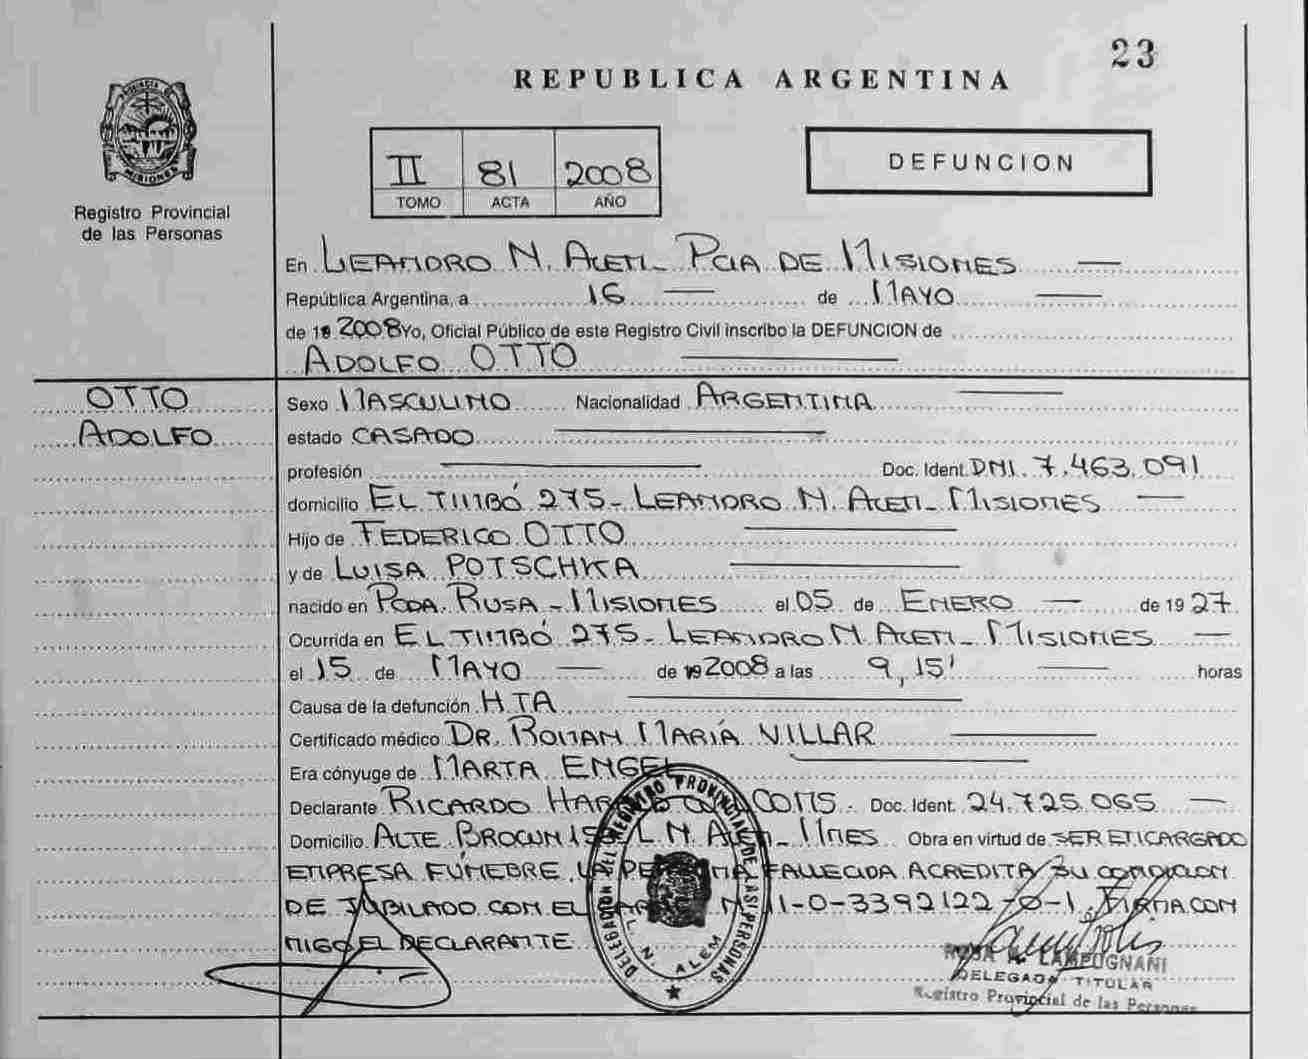 23
REPUBLICA ARGENTINA
PROVINCIA DE MISIONES
Registro Provincial
de las Personas
II 81 2008
TOMO ACTA AÑO
DEFUNCION
En LEANDRO N. ALEM - PCIA DE MISIONES
República Argentina, a 16 de MAYO
de 19 2008 Yo, Oficial Público de este Registro Civil inscribo la DEFUNCION de
ADOLFO OTTO
OTTO
ADOLFO
Sexo MASCULINO Nacionalidad ARGENTINA
estado CASADO
profesión Doc. Ident. DNI. 7.463.091
domicilio EL TIMBÓ 275 - LEANDRO N. ALEM - MISIONES
Hijo de FEDERICO OTTO
y de LUISA POTSCHKA
nacido en PCDA. RUSA - MISIONES el 05 de ENERO de 19 27
Ocurrida en EL TIMBÓ 275 - LEANDRO N. ALEM - MISIONES
el 15 de MAYO de 19 2008 a las 9,15' horas
Causa de la defunción HTA
Certificado médico DR. ROMAN MARÍA VILLAR
Era cónyuge de MARTA ENGEL
Declarante RICARDO Doc. Ident. 24.725.065
Domicilio ALTE. BROWN L.N. ALEM - MNES Obra en virtud de SER ENCARGADO
EMPRESA FÚNEBRE. LA PERSONA FALLECIDA ACREDITA SU CONDICION
DE JUBILADO CON EL 11-0-3392122-0-1. FIRMA CON
MIGO EL DECLARANTE
DELEGACION DEL REGISTRO PROVINCIAL DE LAS PERSONAS
L. N. ALEM
ROSA A. LAMPUGNANI
DELEGADA TITULAR
Registro Provincial de las Personas